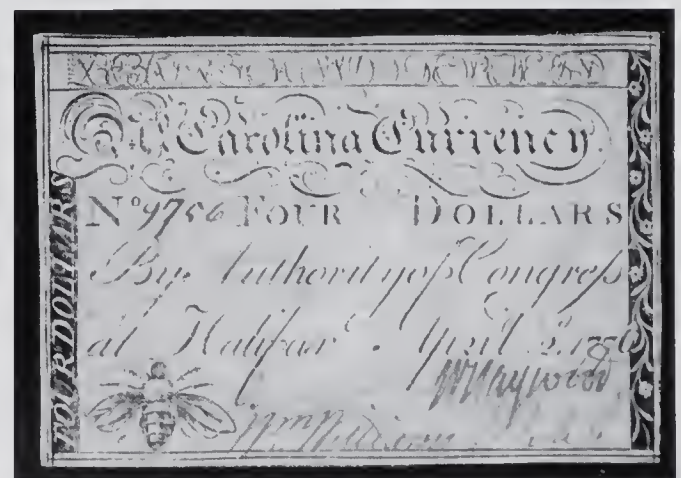 N. Carolina Currency.
No 9756 FOUR DOLLARS
By Authority of Congress
at Halifax. April 2d. 1776
FOUR DOLLARS
W Haywood
Wm Williams